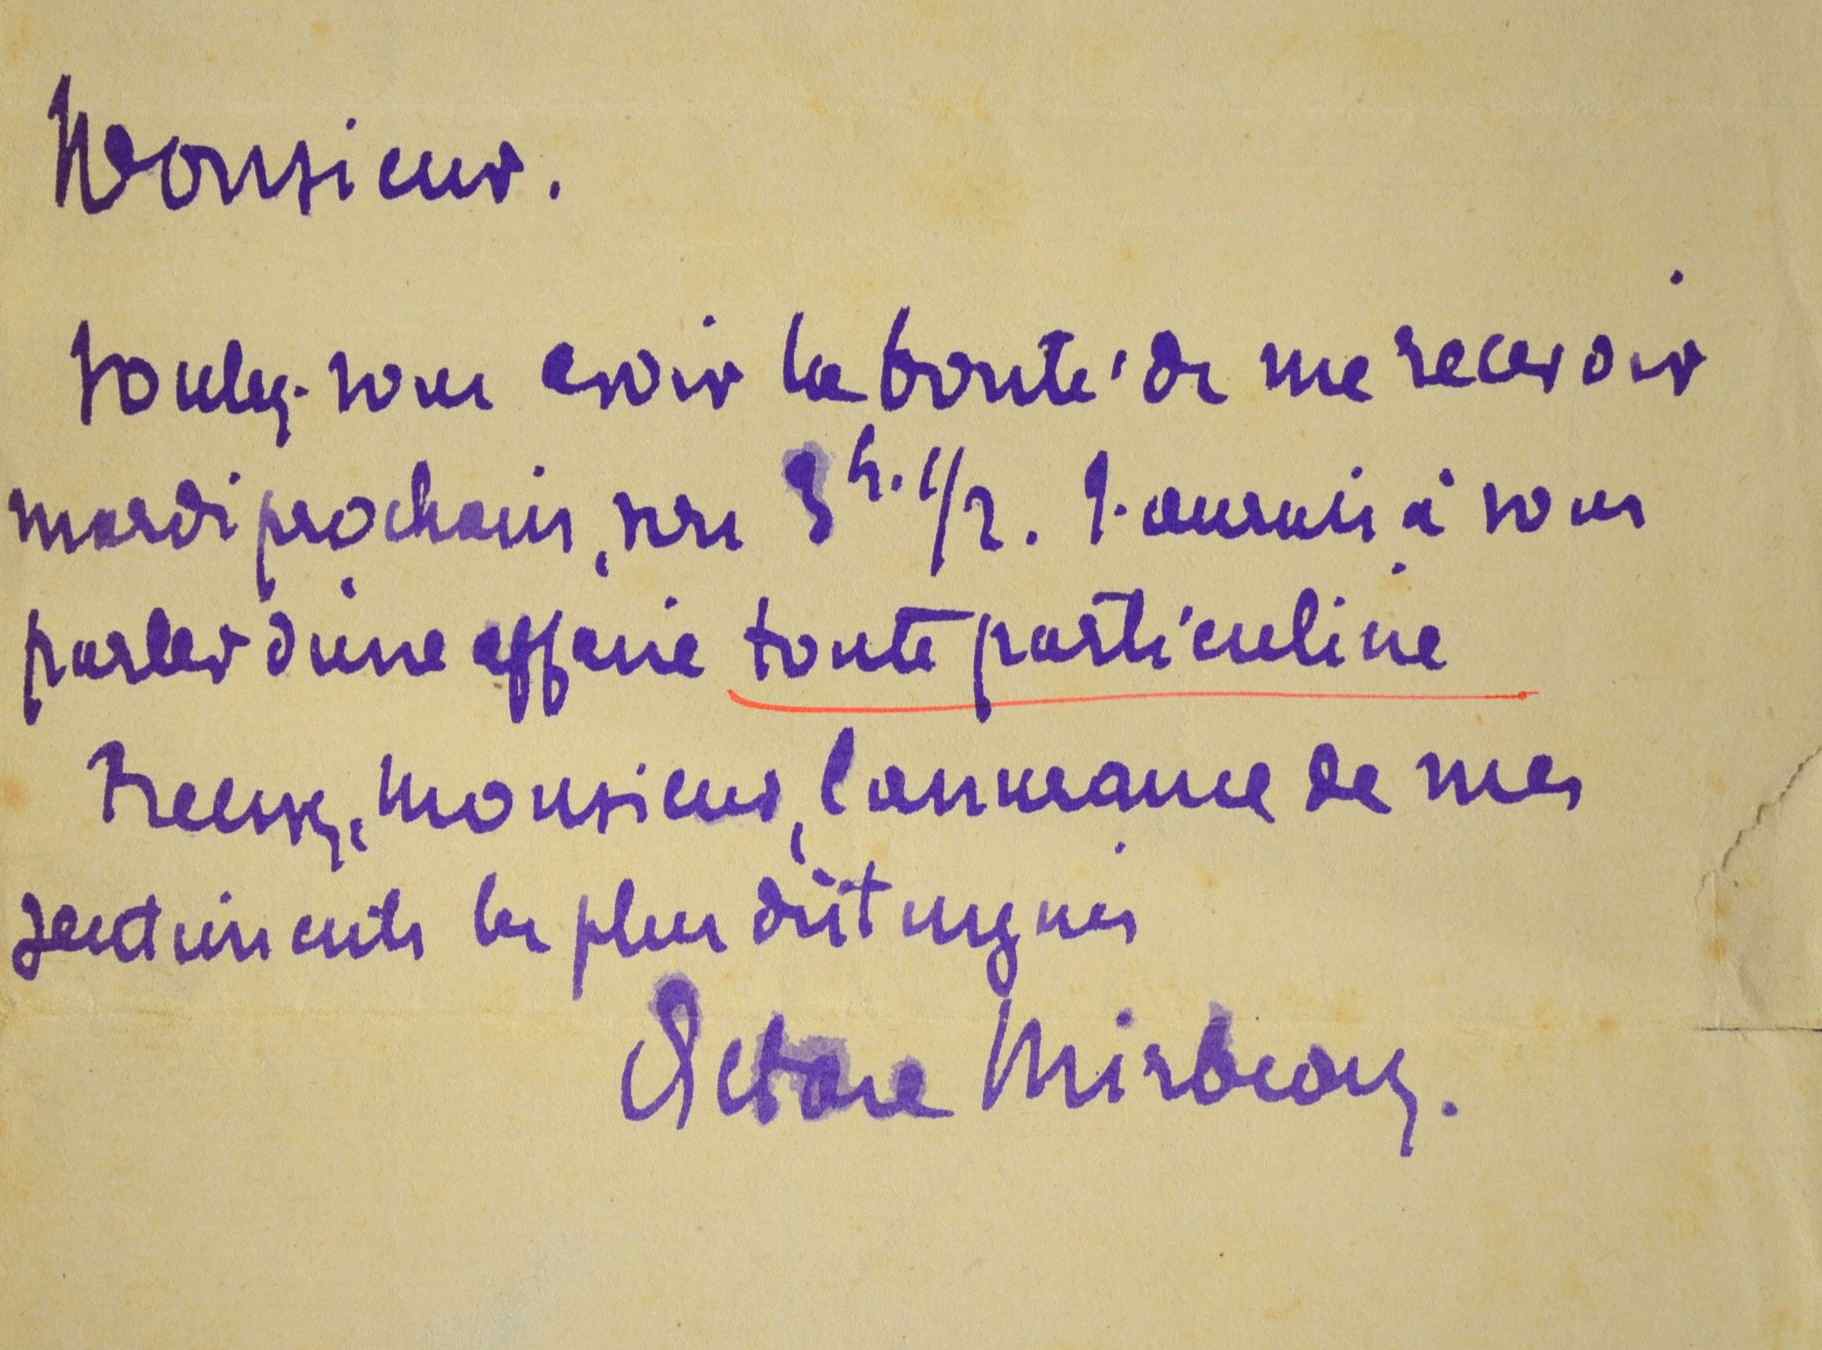 Monsieur.
Voulez-vous avoir la bonté de me recevoir
mardi prochain, vers 3h. 1/2. J'aurais à vous
parler d'une affaire toute particulière
Recevez, Monsieur, l'assurance de mes
sentiments les plus distingués
Octave Mirbeau.